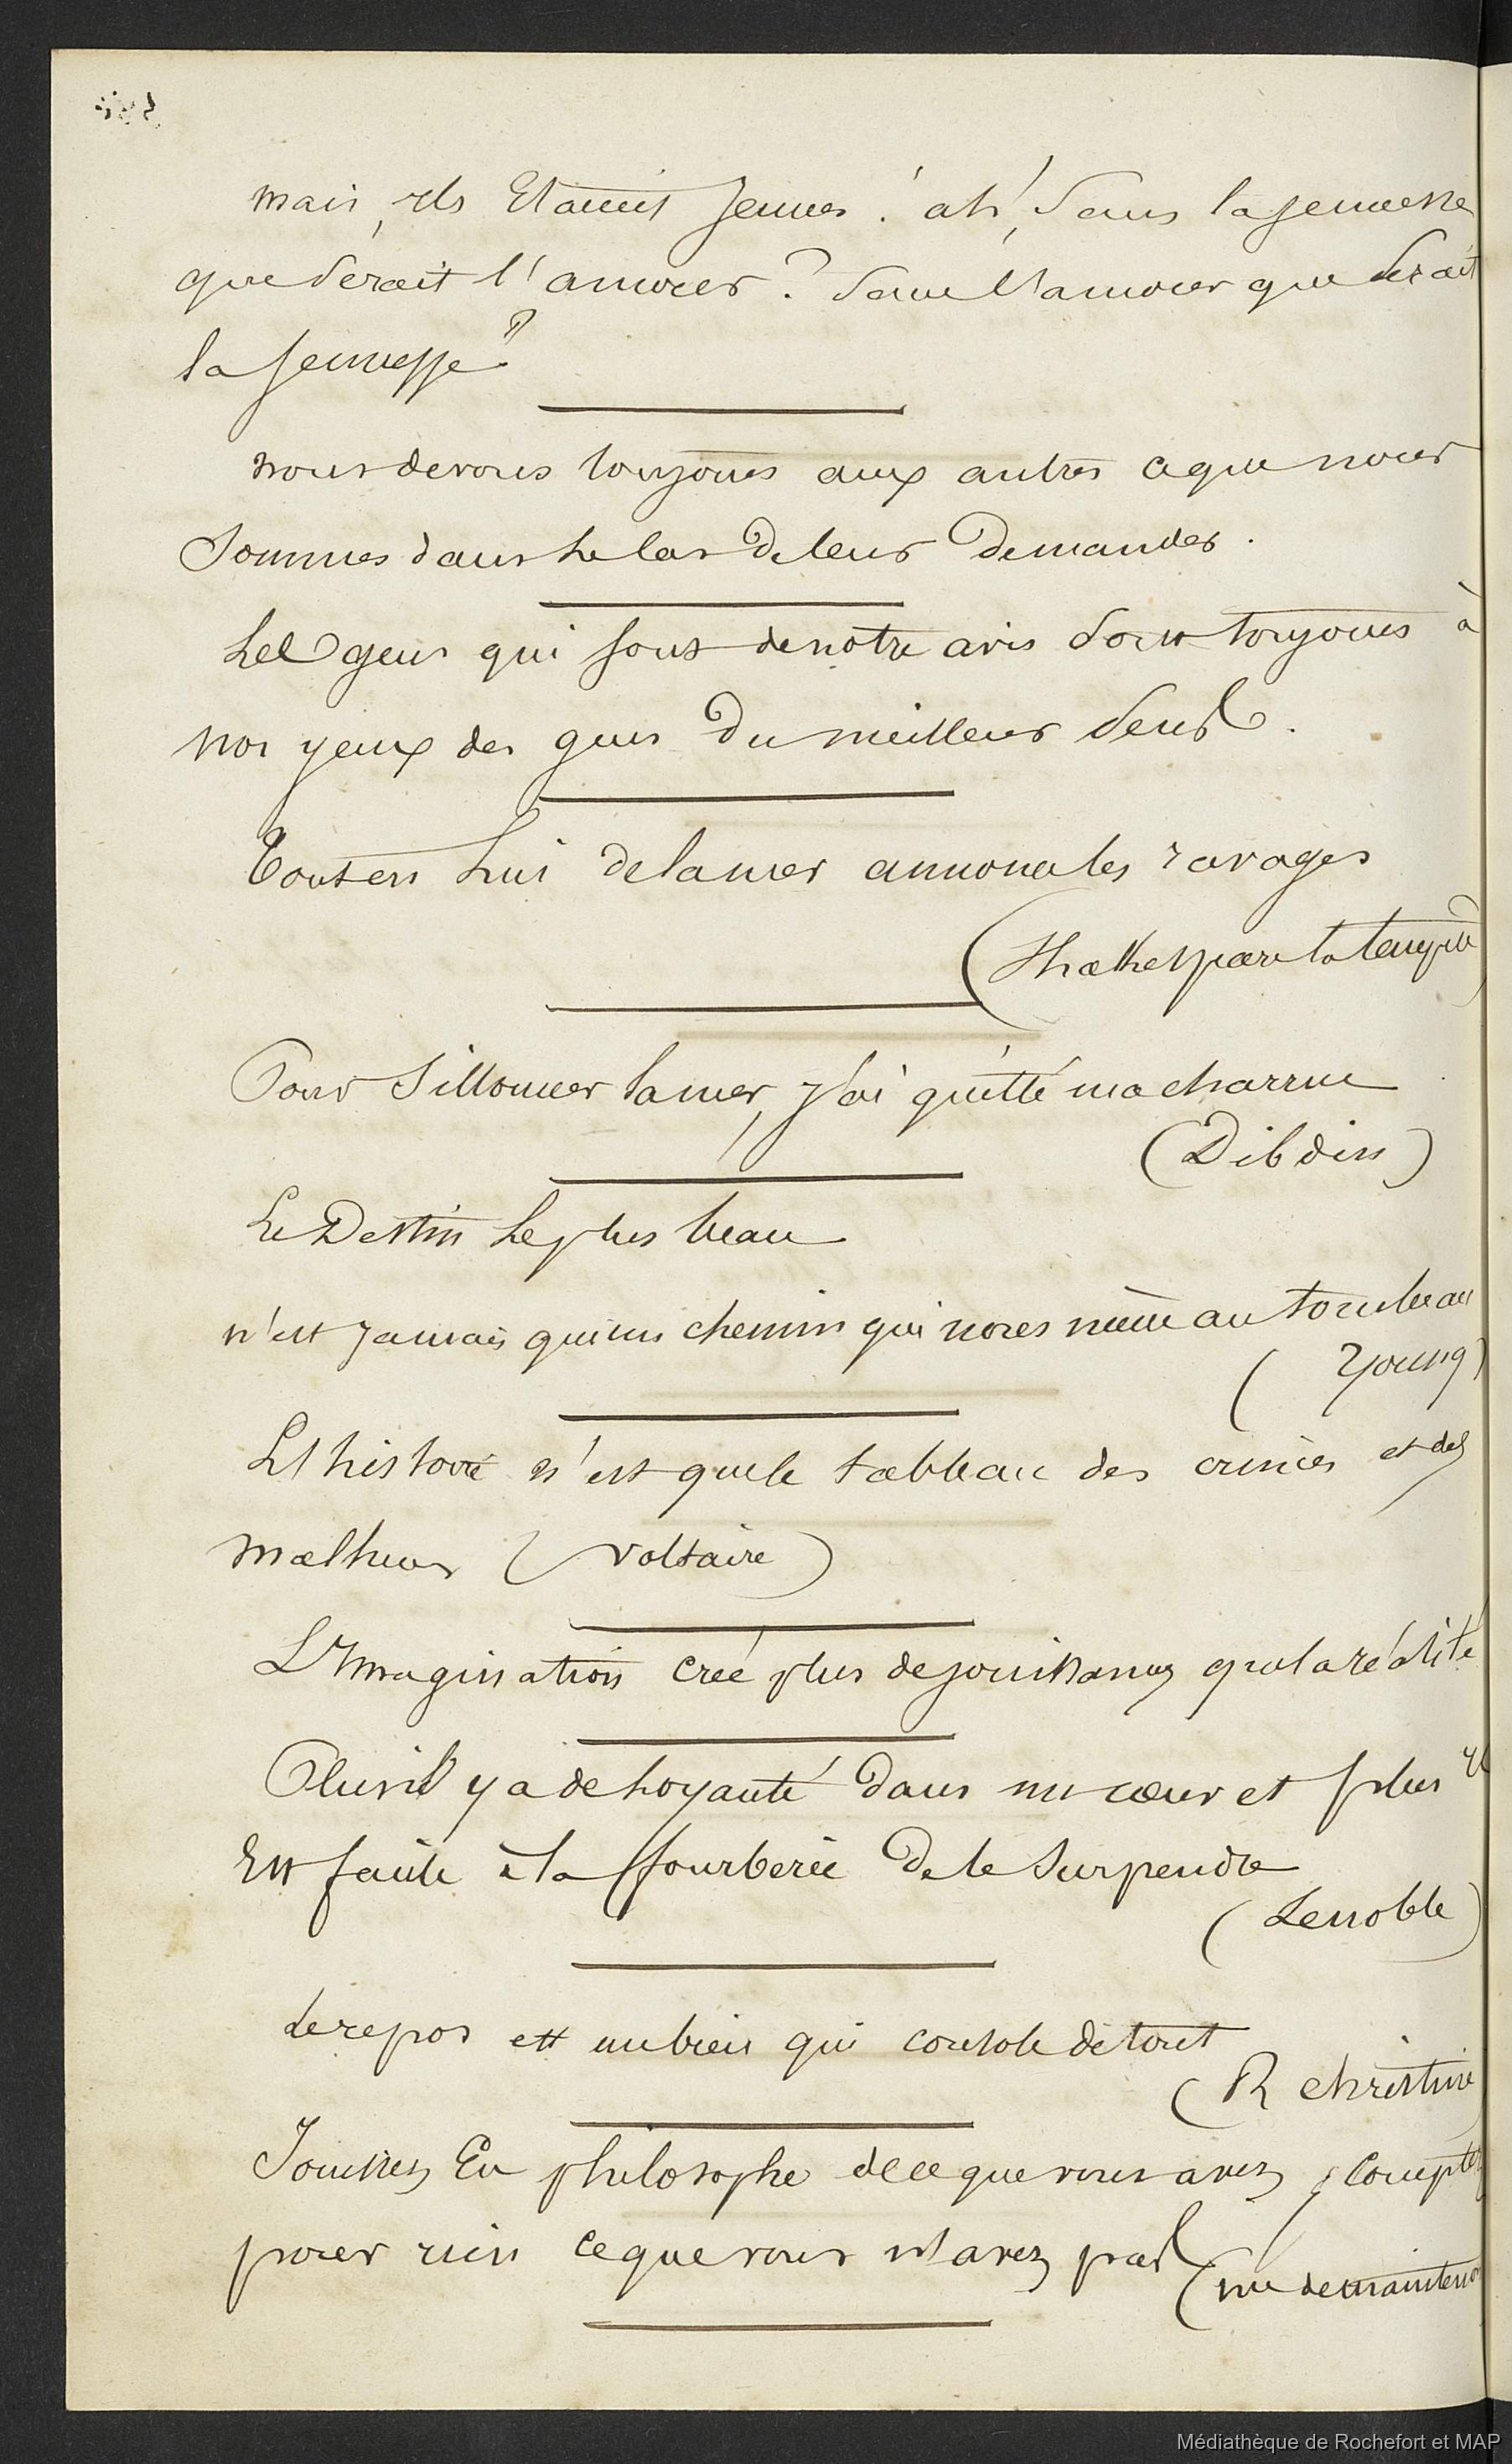 mais, ils Etaient Jeunes ! ah, sans la jeunesse
que serait l'amour ? sans l'amour que serait
la Jeunesse ?
nous devons toujours aux autres ce que nous
sommes dans le cas de leur Demander.
Les gens qui sont de notre avis sont toujours à
nos yeux des gens du meilleur sens.
Tout en Lui de la mer annonce les ravages
(Shakespeare la tempête)
Pour Sillonner la mer, j'ai quitté ma charrue
(Dibdin)
Le Destin le plus beau
n'est jamais qu'un chemin qui nous mène au tombeau
(Young)
L'histoire n'est que le tableau des crimes et des
malheurs (Voltaire)
L'Imagination créé plus de jouissances que la réalité
Plus il y a de loyauté dans un cœur et plus il
Est facile à la fourberie De le surprendre
(Lenoble)
le repos est un bien qui console de tout
(R Christine)
Jouissez En philosophe de ce que vous avez, comptez
pour rien ce que vous n'avez pas (me de maintenon
Médiathèque de Rochefort et MAP